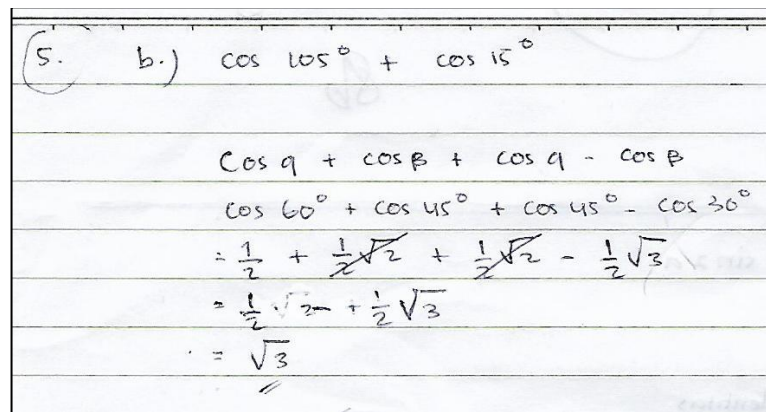 5. b.) cos 105° + cos 15°
cos α + cos β + cos α - cos β
cos 60° + cos 45° + cos 45° - cos 30°
= 1/2 + 1/2√2 + 1/2√2 - 1/2√3
= 1/2 √2 + 1/2√3
= √3